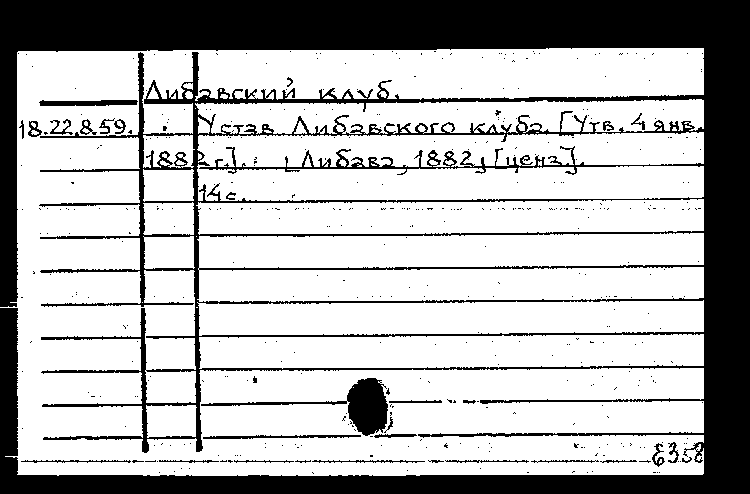 Либавский клуб.
18.22.8.59. Устав Либавского клуба. [Утв. 4 янв.
1882 г.]. [Либава, 1882, [ценз].
14 с.
Е358